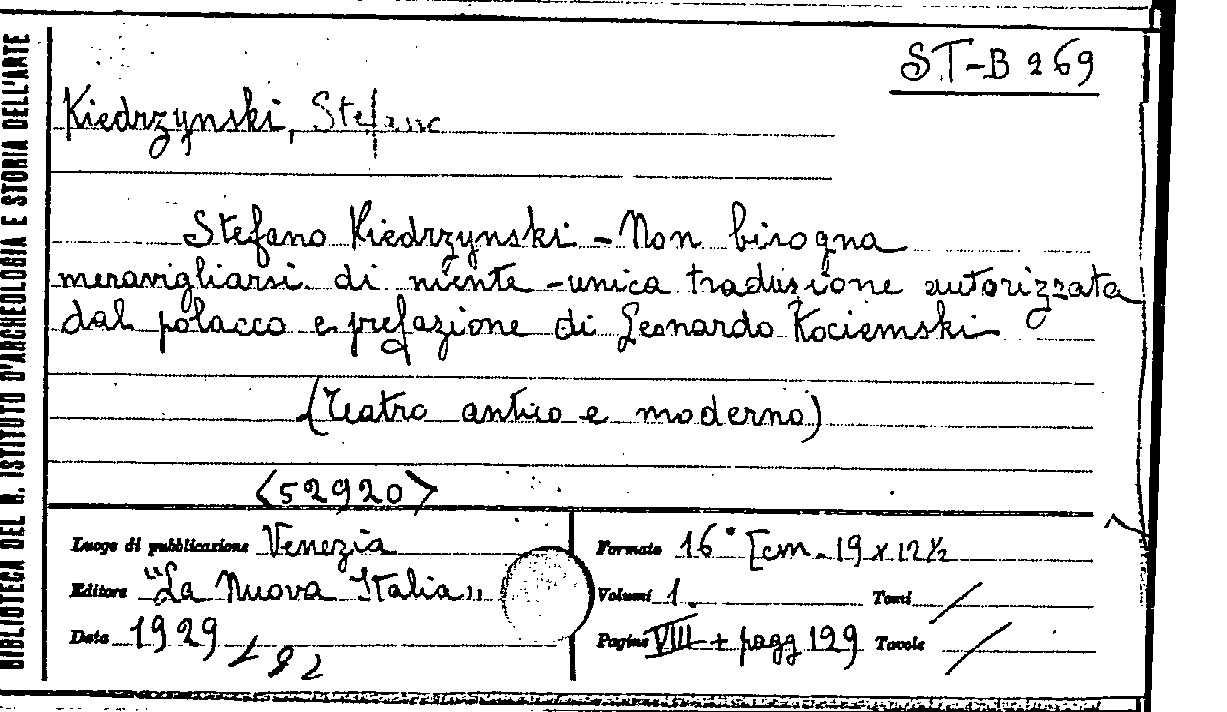 BIBLIOTECA DEL R. ISTITUTO D'ARCHEOLOGIA E STORIA DELL'ARTE
ST-B 269
Kiedrzynski, Stefano
Stefano Kiedrzynski - Non bisogna
meravigliarsi di niente - unica traduzione autorizzata
dal polacco e prefazione di Leonardo Kociemski
(Teatro antico e moderno)
<52920>
Luogo di pubblicazione Venezia
Editore "La Nuova Italia"
Data 1929
Formato 16° [cm. 19 x 12 ½
Volumi 1. Tomi /
Pagine VIII + pagg 129 Tavole /